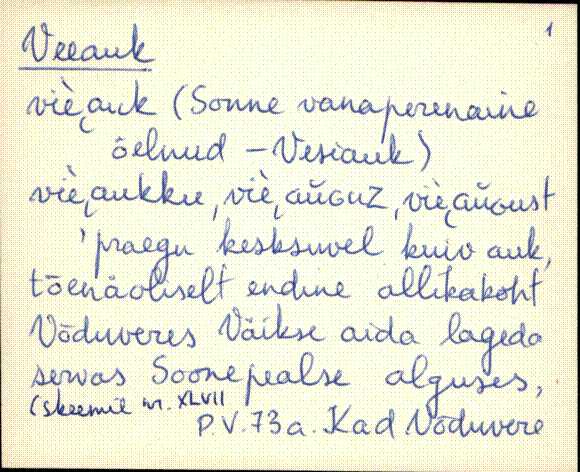 1
Veeauk
viè̮auk (Sonne vanaperenaine
öelnud – Vesiauk)
viè̮aukku, viè̮aŭguz, viè̮aŭgust
'praegu kesksuvel kuiv auk,
tõenäoliselt endine allikakoht
Võduveres Väikse aida lageda
servas Soonepealse alguses,
(skeemil nr. XLVII
P.V. 73 a. Kad Võduvere